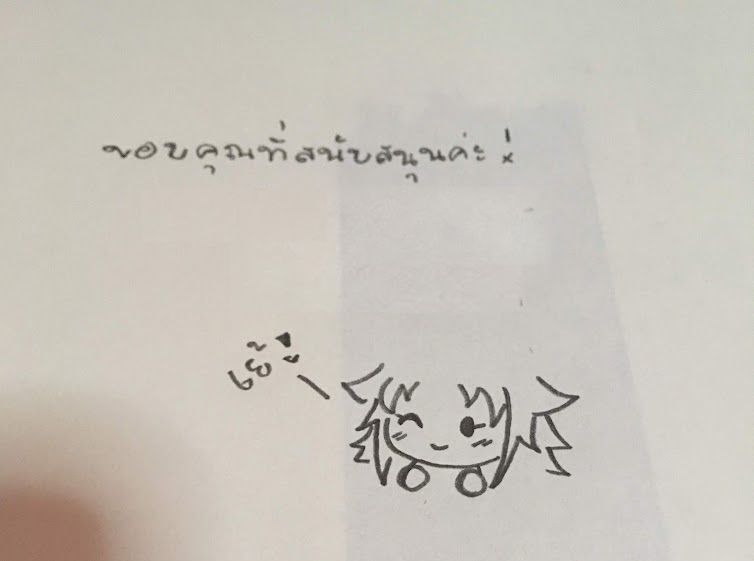 ขอบคุณที่สนับสนุนค่ะ !
เย้ !